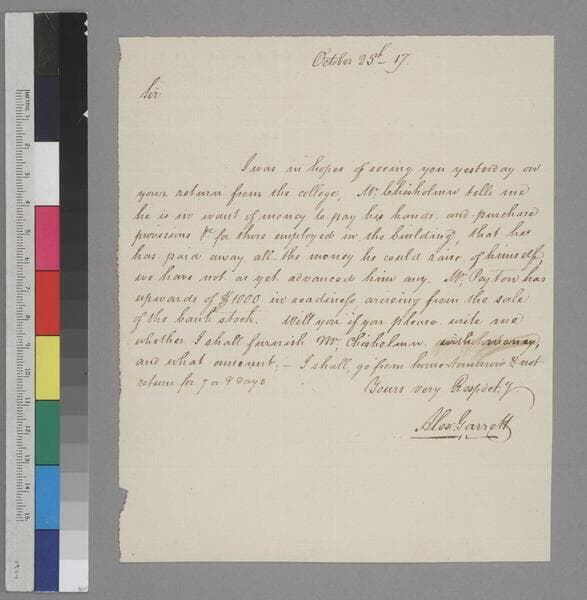 October 25th 17.
Sir
I was in hopes of seeing you yesterday on
your return from the college, Mr Chisholmn tells me
he is in want of money to pay his hands and purchase
provisions &c for those employed in the building, that he
has paid away all the money he could raise of himself,
we have not as yet advanced him any. Mr Peyton has
upwards of $1000 in readiness arising from the sale
of the bank stock. Will you if you please write me
whether I shall furnish Mr Chisholmn with money,
and what amount; – I shall go from home tomorrow & not
return for 7 or 8 days
Yours very Respect.y
Alex. Garrett